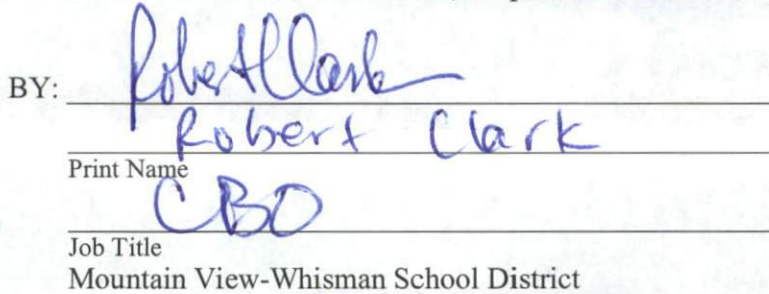 BY: Robert Clark
Robert Clark
Print Name
CBO
Job Title
Mountain View-Whisman School District